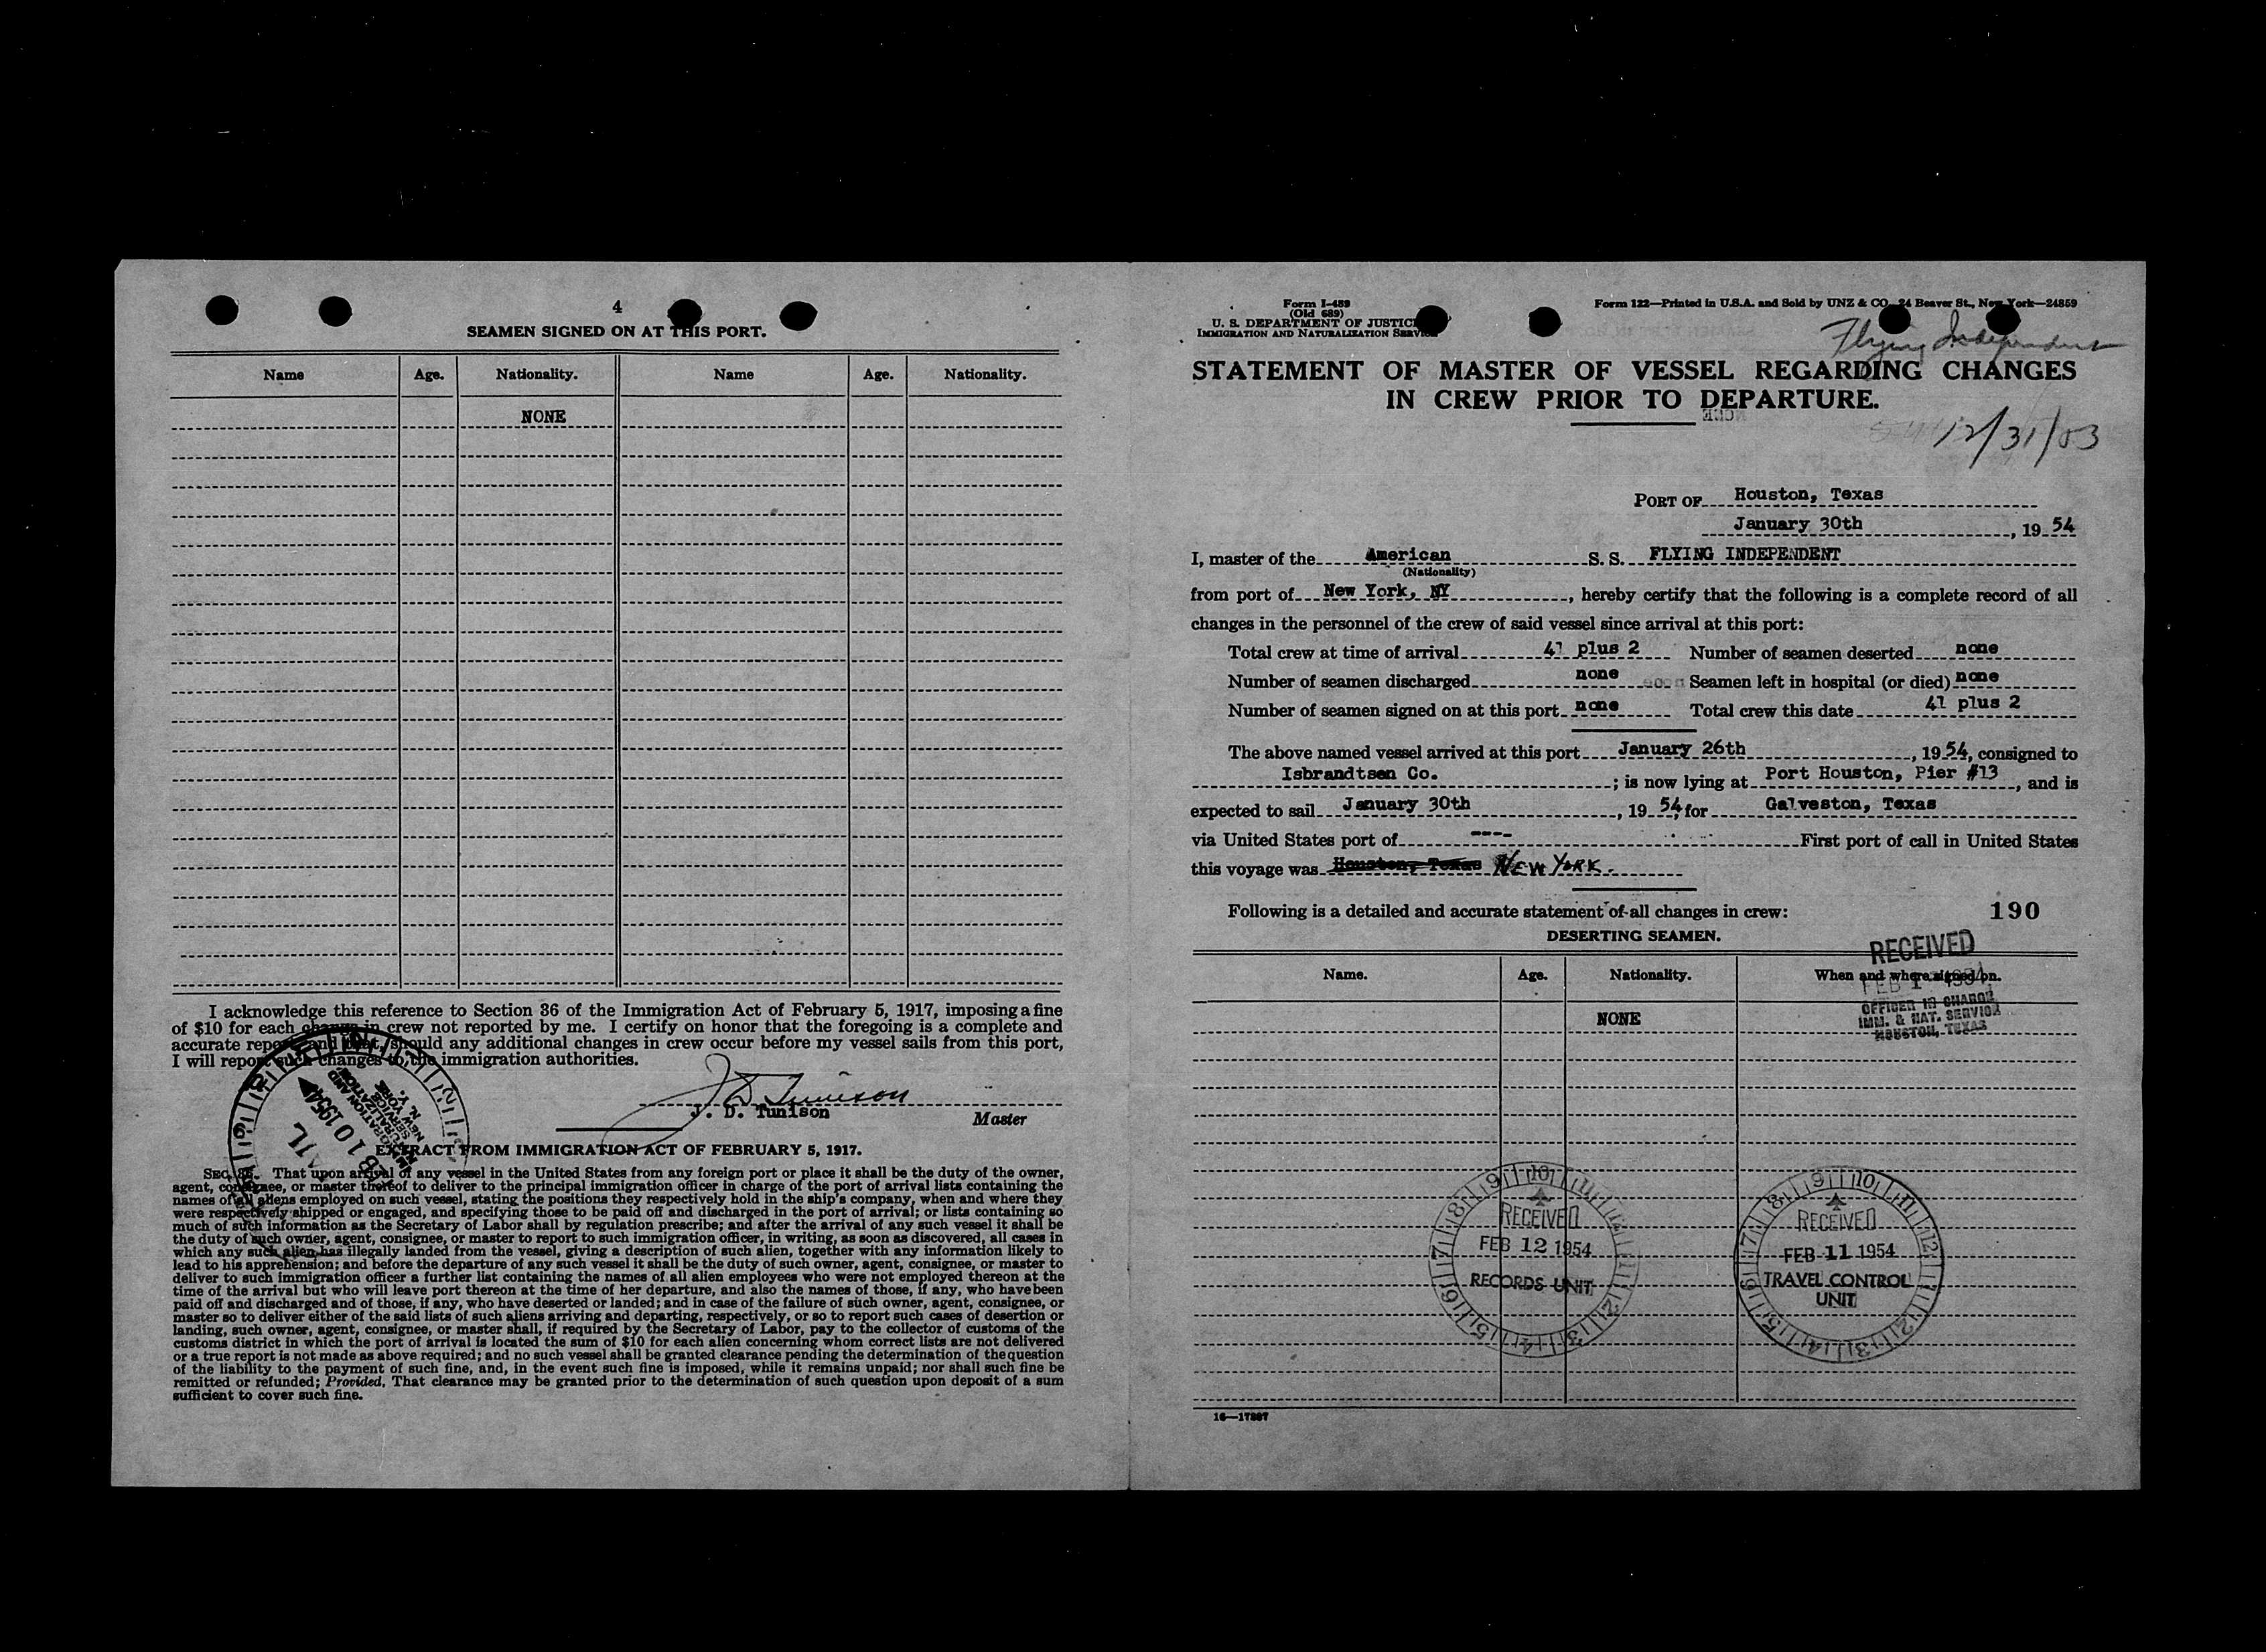 4
SEAMEN SIGNED ON AT THIS PORT.
Name Age. Nationality. Name Age. Nationality.
NONE
I acknowledge this reference to Section 36 of the Immigration Act of February 5, 1917, imposing a fine
of $10 for each change in crew not reported by me. I certify on honor that the foregoing is a complete and
accurate report, and that, should any additional changes in crew occur before my vessel sails from this port,
I will report such changes to the immigration authorities.
J D Tunison
J. D. Tunison
Master
FEB 10 1954
EXTRACT FROM IMMIGRATION ACT OF FEBRUARY 5, 1917.
SEC. 36. That upon arrival of any vessel in the United States from any foreign port or place it shall be the duty of the owner,
agent, consignee, or master thereof to deliver to the principal immigration officer in charge of the port of arrival lists containing the
names of all aliens employed on such vessel, stating the positions they respectively hold in the ship's company, when and where they
were respectively shipped or engaged, and specifying those to be paid off and discharged in the port of arrival; or lists containing so
much of such information as the Secretary of Labor shall by regulation prescribe; and after the arrival of any such vessel it shall be
the duty of such owner, agent, consignee, or master to report to such immigration officer, in writing, as soon as discovered, all cases in
which any such alien has illegally landed from the vessel, giving a description of such alien, together with any information likely to
lead to his apprehension; and before the departure of any such vessel it shall be the duty of such owner, agent, consignee, or master to
deliver to such immigration officer a further list containing the names of all alien employees who were not employed thereon at the
time of the arrival but who will leave port thereon at the time of her departure, and also the names of those, if any, who have been
paid off and discharged and of those, if any, who have deserted or landed; and in case of the failure of such owner, agent, consignee, or
master so to deliver either of the said lists of such aliens arriving and departing, respectively, or so to report such cases of desertion or
landing, such owner, agent, consignee, or master shall, if required by the Secretary of Labor, pay to the collector of customs of the
customs district in which the port of arrival is located the sum of $10 for each alien concerning whom correct lists are not delivered
or a true report is not made as above required; and no such vessel shall be granted clearance pending the determination of the question
of the liability to the payment of such fine, and, in the event such fine is imposed, while it remains unpaid; nor shall such fine be
remitted or refunded; Provided, That clearance may be granted prior to the determination of such question upon deposit of a sum
sufficient to cover such fine.
Form I-489
(Old 689)
U. S. DEPARTMENT OF JUSTICE
IMMIGRATION AND NATURALIZATION SERVICE
Form 122—Printed in U.S.A. and Sold by UNZ & CO., 24 Beaver St., New York—24859
Flying Independent
STATEMENT OF MASTER OF VESSEL REGARDING CHANGES
IN CREW PRIOR TO DEPARTURE.
12/31/53
PORT OF Houston, Texas
January 30th, 19 54
I, master of the American S. S. FLYING INDEPENDENT
(Nationality)
from port of New York, NY, hereby certify that the following is a complete record of all
changes in the personnel of the crew of said vessel since arrival at this port:
Total crew at time of arrival 41 plus 2 Number of seamen deserted none
Number of seamen discharged none Seamen left in hospital (or died) none
Number of seamen signed on at this port none Total crew this date 41 plus 2
The above named vessel arrived at this port January 26th, 19 54, consigned to
Isbrandtsen Co.; is now lying at Port Houston, Pier #13, and is
expected to sail January 30th, 19 54, for Galveston, Texas
via United States port of ---- First port of call in United States
this voyage was Houston, Texas NEW YORK.
Following is a detailed and accurate statement of all changes in crew: 190
DESERTING SEAMEN.
Name. Age. Nationality. When and where signed on.
NONE
RECEIVED
FEB 1 1954
OFFICER IN CHARGE
IMM. & NAT. SERVICE
HOUSTON, TEXAS
RECEIVED
FEB 12 1954
RECORDS UNIT
RECEIVED
FEB 11 1954
TRAVEL CONTROL
UNIT
16—17887